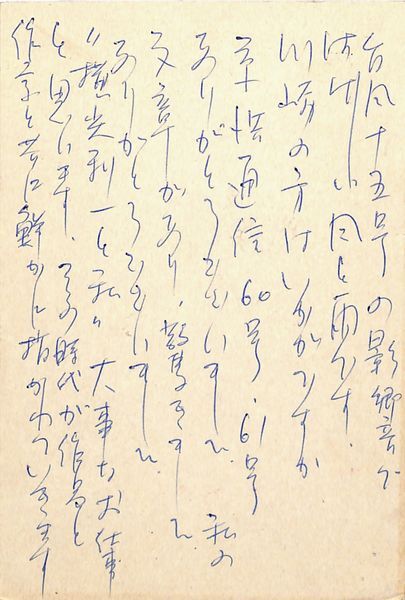 台風十五号の影響で
はげしい風と雨です。
川崎の方はいかがですか
通信60号・61号
ありがとうございました。私の
文章があり、驚きました。
ありがとうございました。
"横光利一と私" 大事なお仕事
と思います。その時代が作品と
作家と共に鮮かに描かれていきます